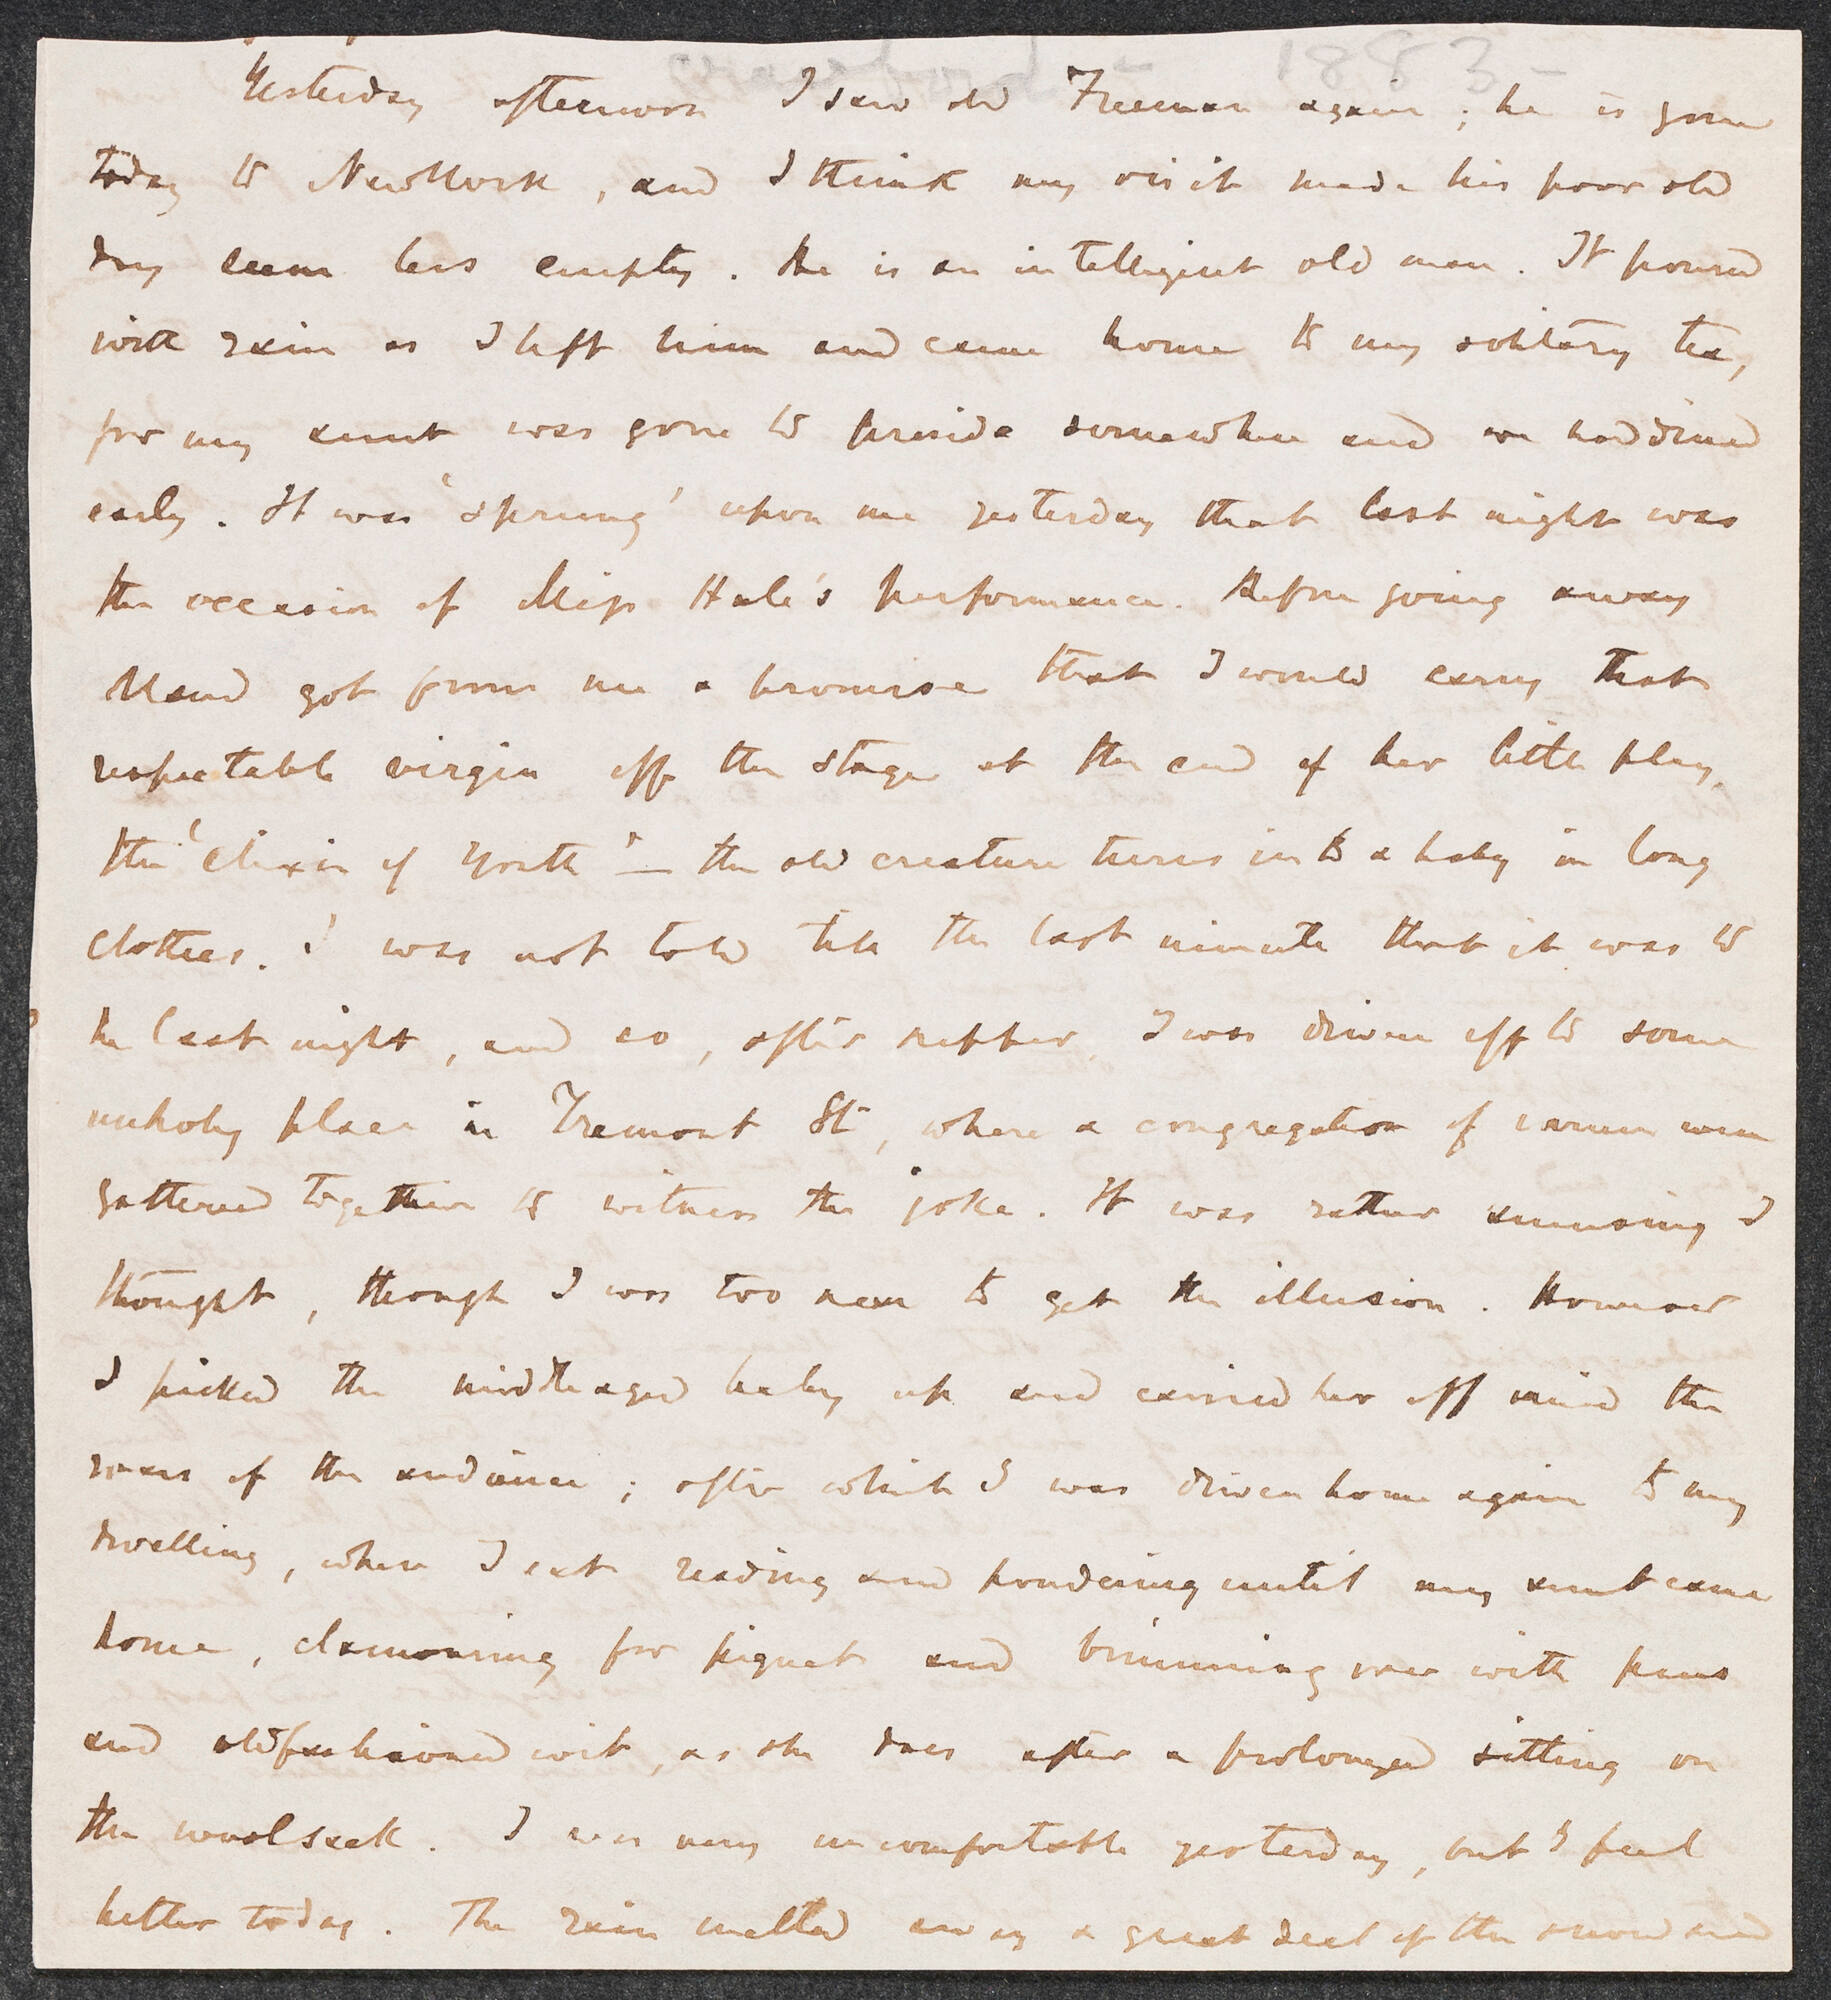 Crawford - 1883 -
Yesterday afternoon I saw old Freeman again; he is gone
today to New York, and I think my visit made his poor old
day seem less empty. He is an intelligent old man. It poured
with rain as I left him and came home to my solitary tea,
for my aunt was gone to preside somewhere and we had dined
early. It was 'sprung' upon me yesterday that last night was
the occasion of Miss Hale's performance. Before going away
Maud got from me a promise that I would carry that
respectable virgin off the stage at the end of her little play,
the 'Elixir of Youth' — the old creature turns into a baby in long
clothes. I was not told till the last minute that it was to
be last night, and so, after supper, I was driven off to some
unholy place in Tremont St, where a congregation of women were
gathered together to witness the joke. It was rather amusing I
thought, though I was too near to get the illusion. However
I picked the middleaged baby up and carried her off mid the
roars of the audience; after which I was driven home again to my
dwelling, where I sat reading and pondering until my aunt came
home, clamouring for piquet and brimming over with puns
and oldfashioned wit, as she does after a prolonged sitting on
the woolsack. I was very uncomfortable yesterday, but I feel
better today. The rain melted away a great deal of the snow and